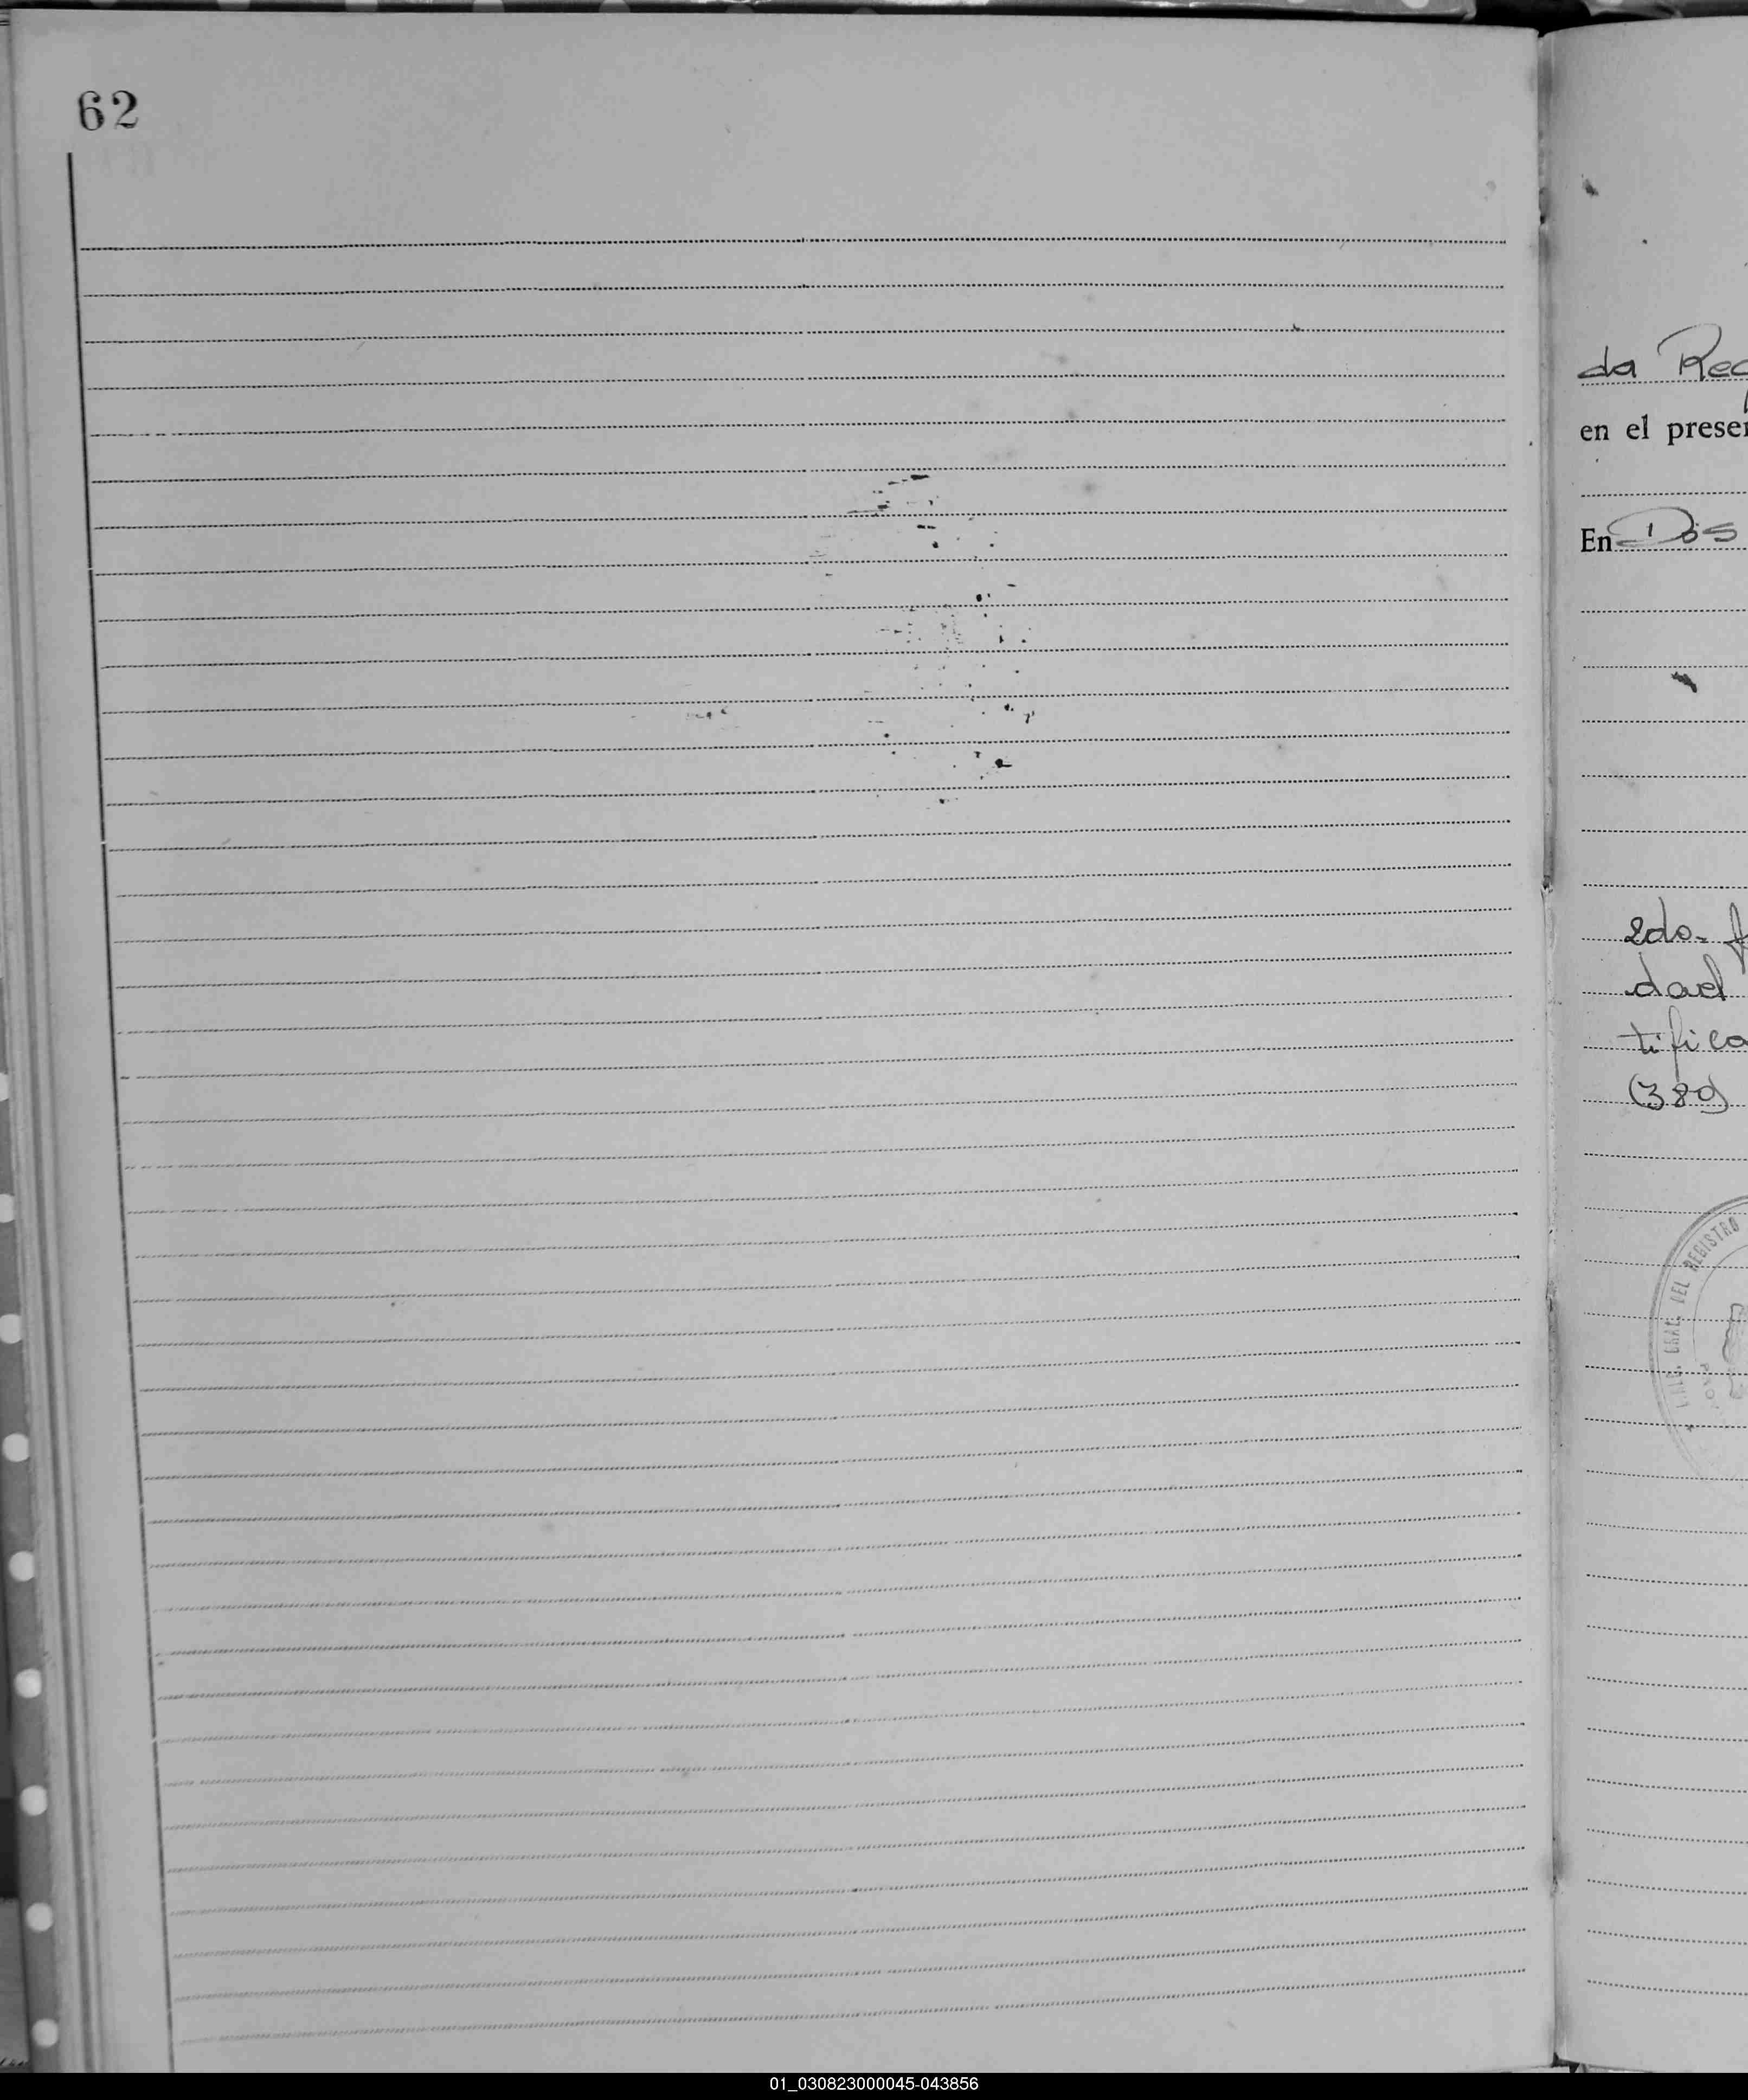 62
da Rec
en el presen
En Dos
2do.
dad
tifica
(389
GRAL. DEL REGISTRO
01_030823000045-043856